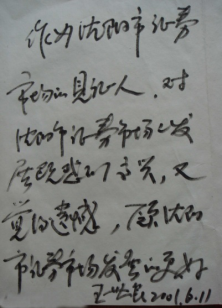 作为沈阳市证券
市场的见证人，对
沈阳市证券市场之发
展既感到高兴，又
觉得遗憾，愿沈阳
市证券市场发展的更好
2001.6.11